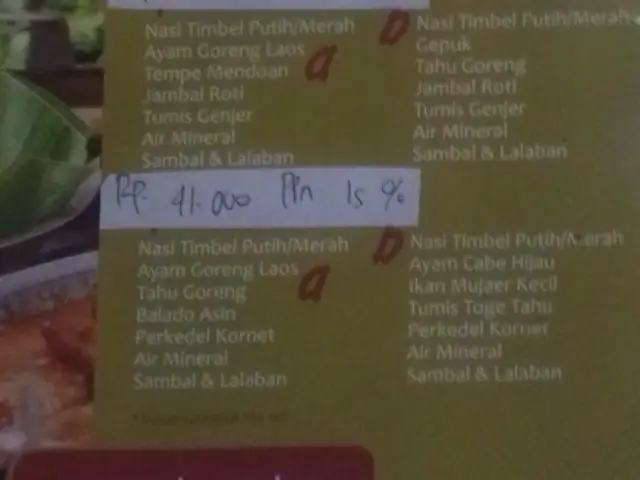 Nasi Timbel Putih/Merah
Ayam Goreng Laos
Tempe Mendoan
Jambal Roti
Tumis Genjer
Air Mineral
Sambal & Lalaban
a
b
Nasi Timbel Putih/Merah
Gepuk
Tahu Goreng
Jambal Roti
Tumis Genjer
Air Mineral
Sambal & Lalaban
Rp. 41.000 Ppn 15 %
Nasi Timbel Putih/Merah
Ayam Goreng Laos
Tahu Goreng
Balado Asin
Perkedel Kornet
Air Mineral
Sambal & Lalaban
a
b
Nasi Timbel Putih/Merah
Ayam Cabe Hijau
Ikan Mujaer Kecil
Tumis Toge Tahu
Perkedel Kornet
Air Mineral
Sambal & Lalaban